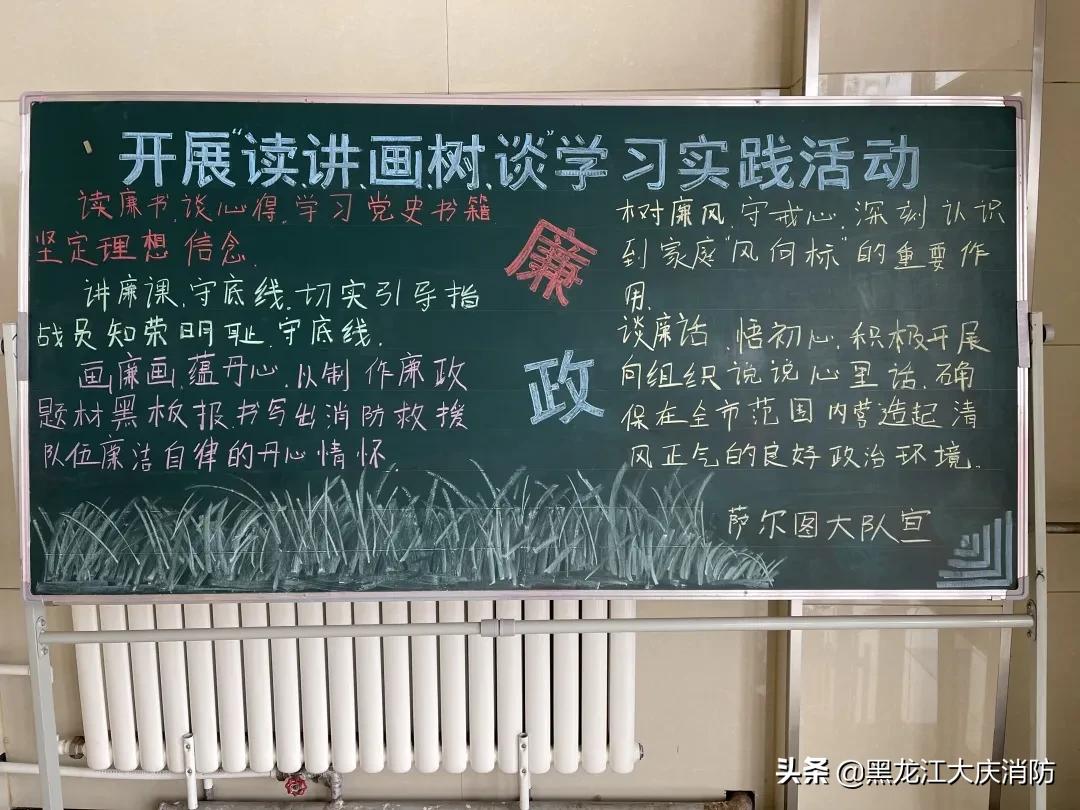 开展“读、讲、画、树、谈”学习实践活动
读廉书、谈心得、学习党史书籍
坚定理想信念.
讲廉课、守底线、切实引导指
战员知荣明耻、守底线.
画廉画、蕴丹心、以制作廉政
题材黑板报、书写出消防救援
队伍廉洁自律的丹心情怀.
廉
政
树廉风、守戒心、深刻认识
到家庭“风向标”的重要作
用.
谈廉话、悟初心、积极开展
向组织说说心里话、确
保在全市范围内营造起清
风正气的良好政治环境.
萨尔图大队宣
头条 @黑龙江大庆消防